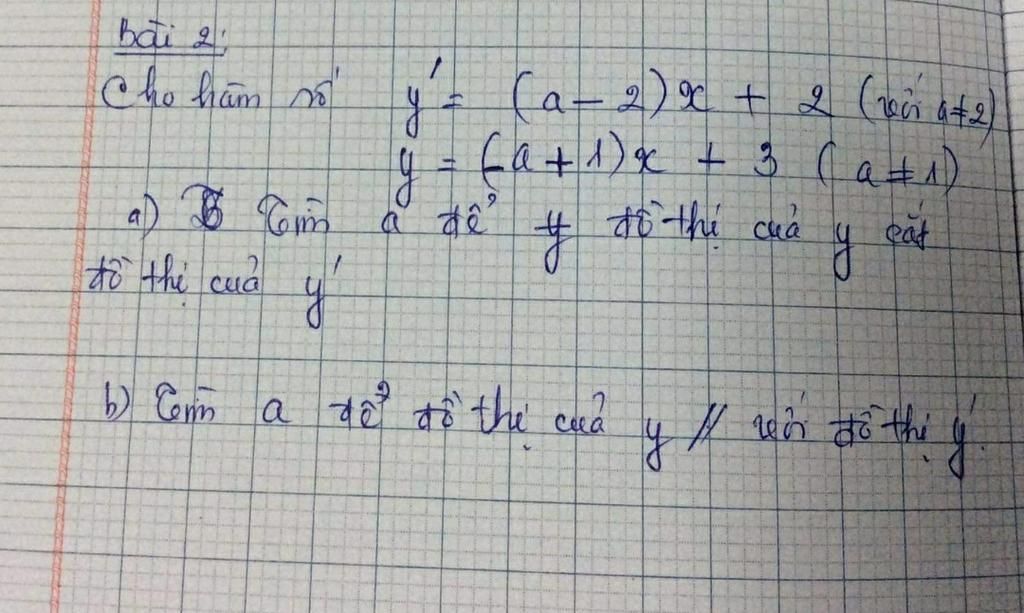 Bài 2:
Cho hàm số y' = (a - 2)x + 2 (với a ≠ 2)
y = (-a + 1)x + 3 (a ≠ 1)
a) Tìm a để đồ thị của y cắt
đồ thị của y'
b) Tìm a để đồ thị của y // với đồ thị y'.